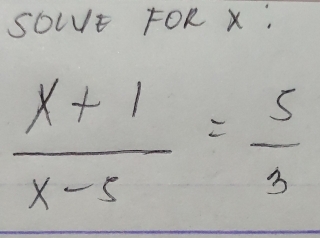 SOLVE FOR X:
X + 1 / X - 5 = 5 / 3